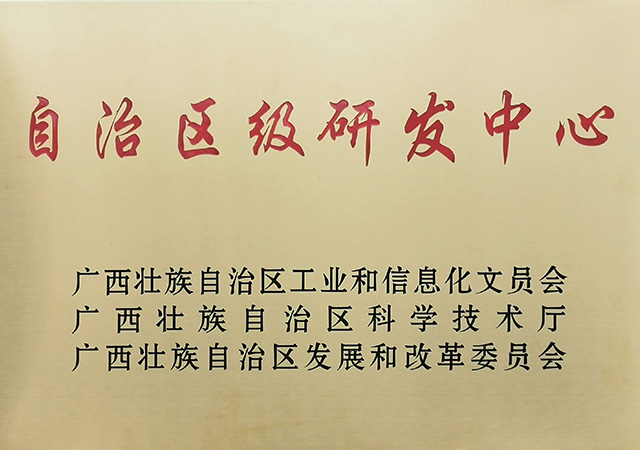 自治区级研发中心
广西壮族自治区工业和信息化文员会
广西壮族自治区科学技术厅
广西壮族自治区发展和改革委员会